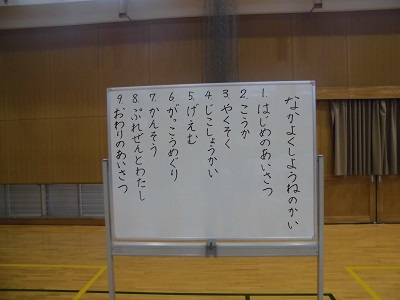 なかよくしようねのかい
1.はじめのあいさつ
2.こうか
3.やくそく
4.じこしょうかい
5.げえむ
6.がっこうめぐり
7.かんそう
8.ぷれぜんとわたし
9.おわりのあいさつ